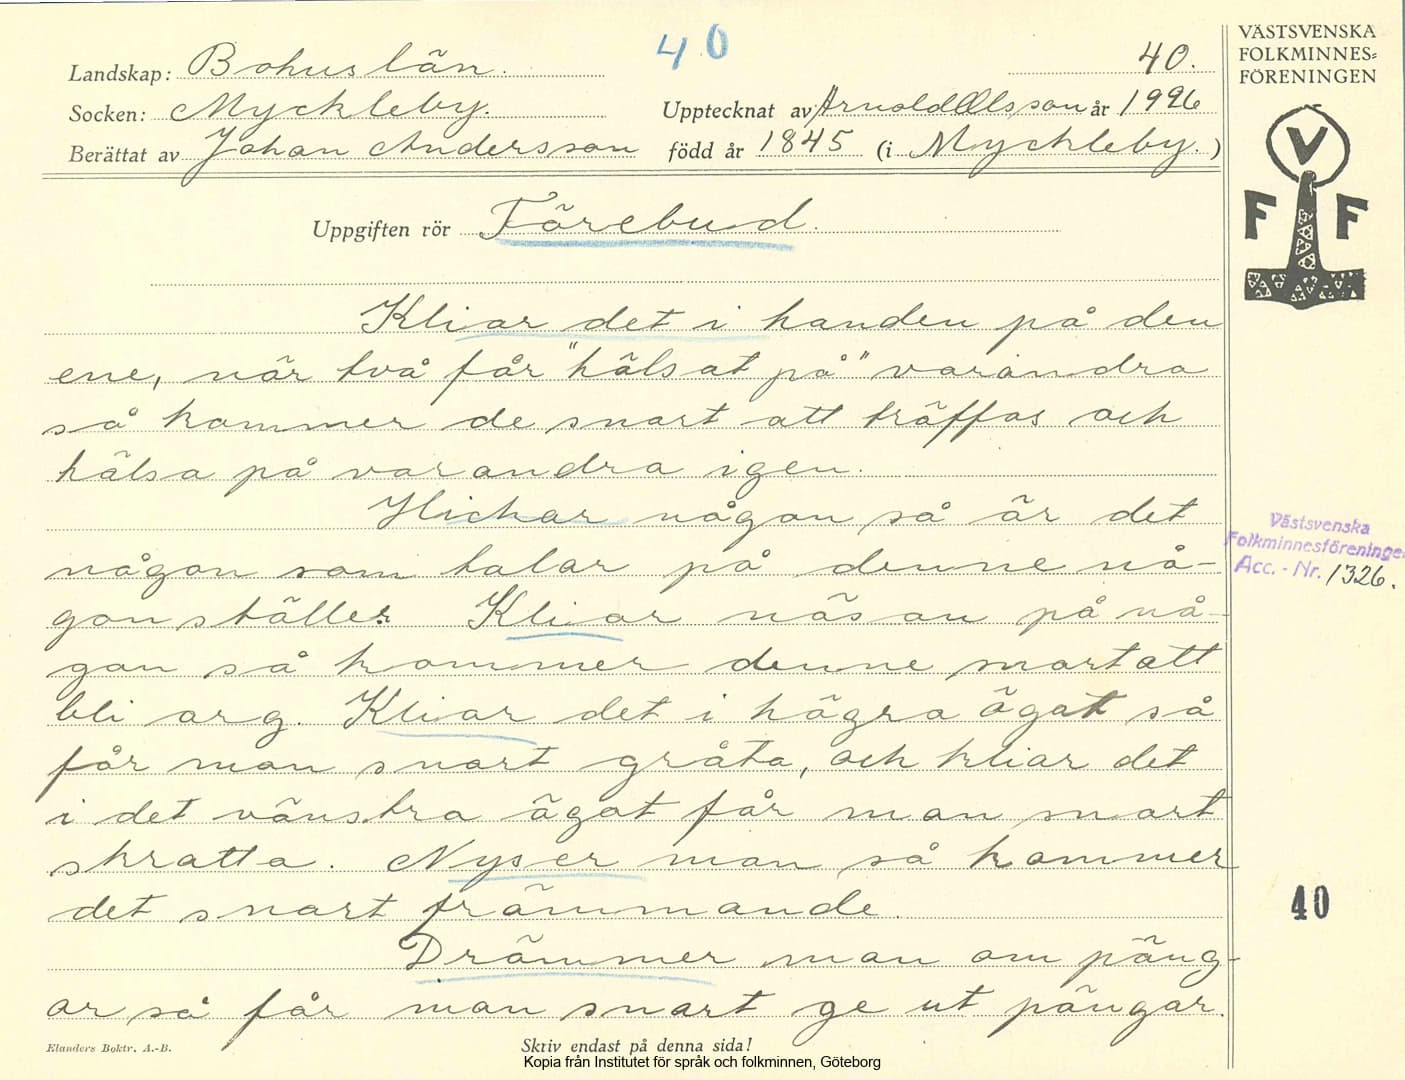 40
40.
VÄSTSVENSKA
FOLKMINNES=
FÖRENINGEN
V
F F
Landskap: Bohuslän.
Socken: Myckleby. Upptecknat av Arnold Olsson år 1926
Berättat av Johan Andersson född år 1845 (i Myckleby.)
Uppgiften rör Förebud.
Kliar det i handen på den
ene, när två får "hälsat på" varandra
så kommer de snart att träffas och
hälsa på varandra igen.
Hickar någon så är det
någon som talar på denne nå-
gon ställes. Kliar näsan på nå-
gon så kommer denne snart att
bli arg. Kliar det i högra ögat så
får man snart gråta, och kliar det
i det vänstra ögat får man snart
skratta. Nyser man så kommer
det snart främmande.
Drömmer man om päng-
ar så får man snart ge ut pängar.
Västsvenska
Folkminnesföreningen
Acc. - Nr. 1326.
40
Elanders Boktr. A.-B.
Skriv endast på denna sida!
Kopia från Institutet för språk och folkminnen, Göteborg